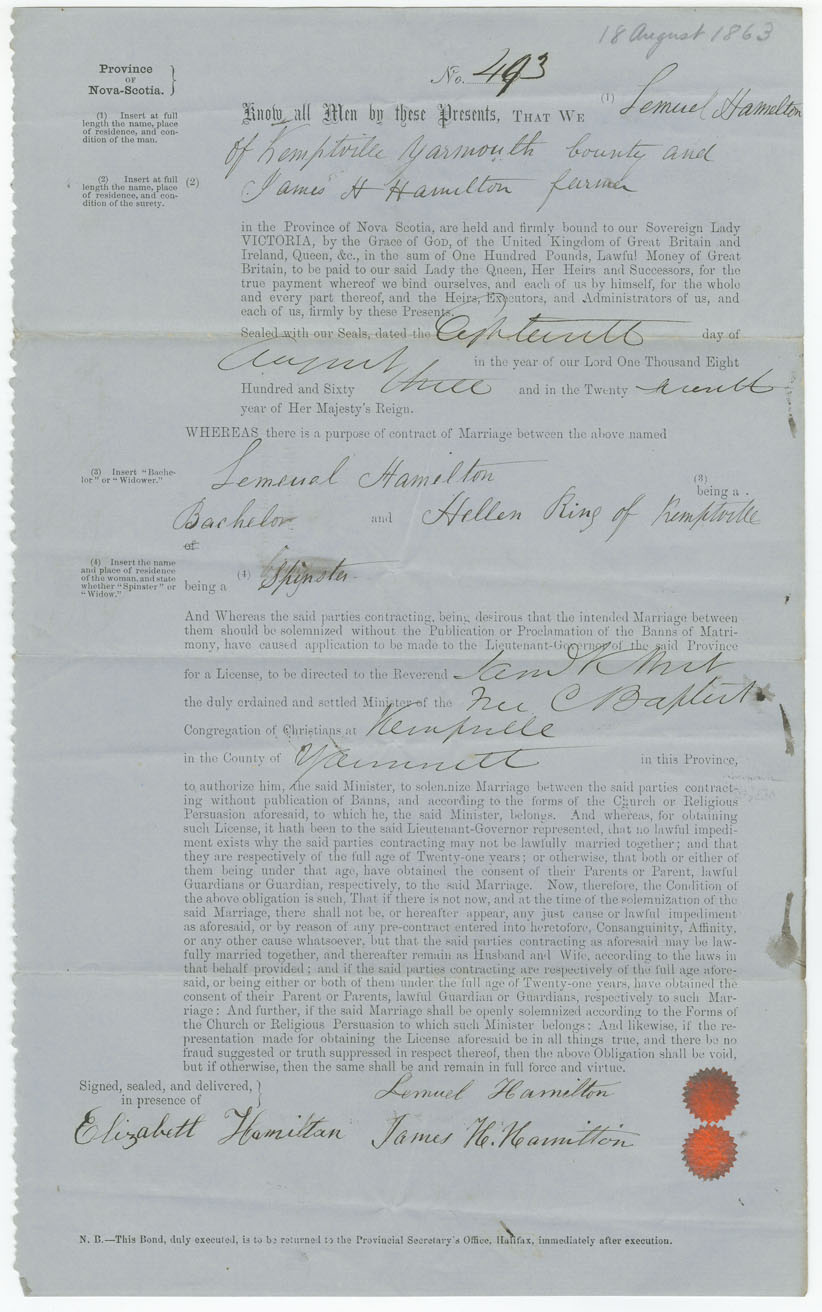 18 August 1863
Province
OF
Nova-Scotia.
No. 493
(1) Insert at full
length the name, place
of residence, and con-
dition of the man.
Know all Men by these Presents, THAT WE (1) Lemuel Hamilton
of Kemptville Yarmouth County and
(2) Insert at full
length the name, place
of residence, and con-
dition of the surety.
(2) James H Hamilton farmer
in the Province of Nova Scotia, are held and firmly bound to our Sovereign Lady
VICTORIA, by the Grace of GOD, of the United Kingdom of Great Britain and
Ireland, Queen, &c., in the sum of One Hundred Pounds, Lawful Money of Great
Britain, to be paid to our said Lady the Queen, Her Heirs and Successors, for the
true payment whereof we bind ourselves, and each of us by himself, for the whole
and every part thereof, and the Heirs, Executors, and Administrators of us, and
each of us, firmly by these Presents.
Sealed with our Seals, dated the Eighteenth day of
August in the year of our Lord One Thousand Eight
Hundred and Sixty three and in the Twenty seventh
year of Her Majesty's Reign.
WHEREAS there is a purpose of contract of Marriage between the above named
(3) Insert "Bache-
lor" or "Widower."
Lemeual Hamilton (3)
being a
Bachelor and Hellen Ring of Kemptville
of
(4) Insert the name
and place of residence
of the woman, and state
whether "Spinster" or
"Widow."
being a (4) Spinster
And Whereas the said parties contracting, being desirous that the intended Marriage between
them should be solemnized without the Publication or Proclamation of the Banns of Matri-
mony, have caused application to be made to the Lieutenant-Governor of the said Province
for a License, to be directed to the Reverend
the duly ordained and settled Minister of the Free C Baptist
Congregation of Christians at Kempville
in the County of Yarmouth in this Province,
to authorize him, the said Minister, to solemnize Marriage between the said parties contract-
ing without publication of Banns, and according to the forms of the Church or Religious
Persuasion aforesaid, to which he, the said Minister, belongs. And whereas, for obtaining
such License, it hath been to the said Lieutenant-Governor represented, that no lawful impedi-
ment exists why the said parties contracting may not be lawfully married together; and that
they are respectively of the full age of Twenty-one years; or otherwise, that both or either of
them being under that age, have obtained the consent of their Parents or Parent, lawful
Guardians or Guardian, respectively, to the said Marriage. Now, therefore, the Condition of
the above obligation is such, That if there is not now, and at the time of the solemnization of the
said Marriage, there shall not be, or hereafter appear, any just cause or lawful impediment
as aforesaid, or by reason of any pre-contract entered into heretofore, Consanguinity, Affinity,
or any other cause whatsoever, but that the said parties contracting as aforesaid may be law-
fully married together, and thereafter remain as Husband and Wife, according to the laws in
that behalf provided; and if the said parties contracting are respectively of the full age afore-
said, or being either or both of them under the full age of Twenty-one years, have obtained the
consent of their Parent or Parents, lawful Guardian or Guardians, respectively to such Mar-
riage: And further, if the said Marriage shall be openly solemnized according to the Forms of
the Church or Religious Persuasion to which such Minister belongs: And likewise, if the re-
presentation made for obtaining the License aforesaid be in all things true, and there be no
fraud suggested or truth suppressed in respect thereof, then the above Obligation shall be void,
but if otherwise, then the same shall be and remain in full force and virtue.
Signed, sealed, and delivered,
in presence of
Lemuel Hamilton
Elizabett Hamiltan James H. Hamilton
N. B.—This Bond, duly executed, is to be returned to the Provincial Secretary's Office, Halifax, immediately after execution.